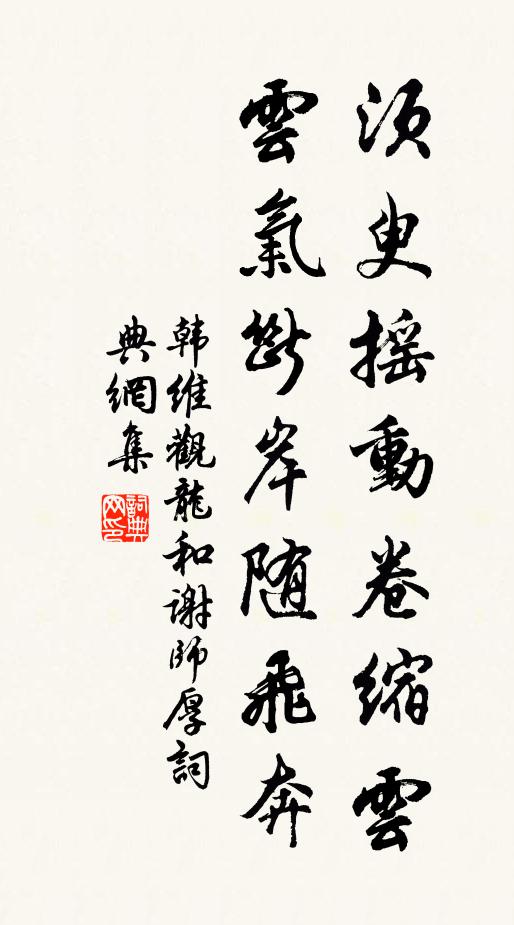 須臾摇動卷縮雲
雲氣斷岸随飛奔
韩維觀龍和谢師厚詞
典網集
詞典网印